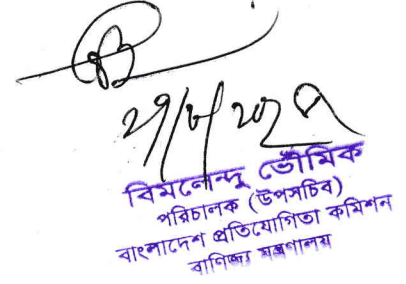 বিমলেন্দু ভৌমিক
পরিচালক (উপসচিব)
বাংলাদেশ প্রতিযোগিতা কমিশন
বাণিজ্য মন্ত্রণালয়